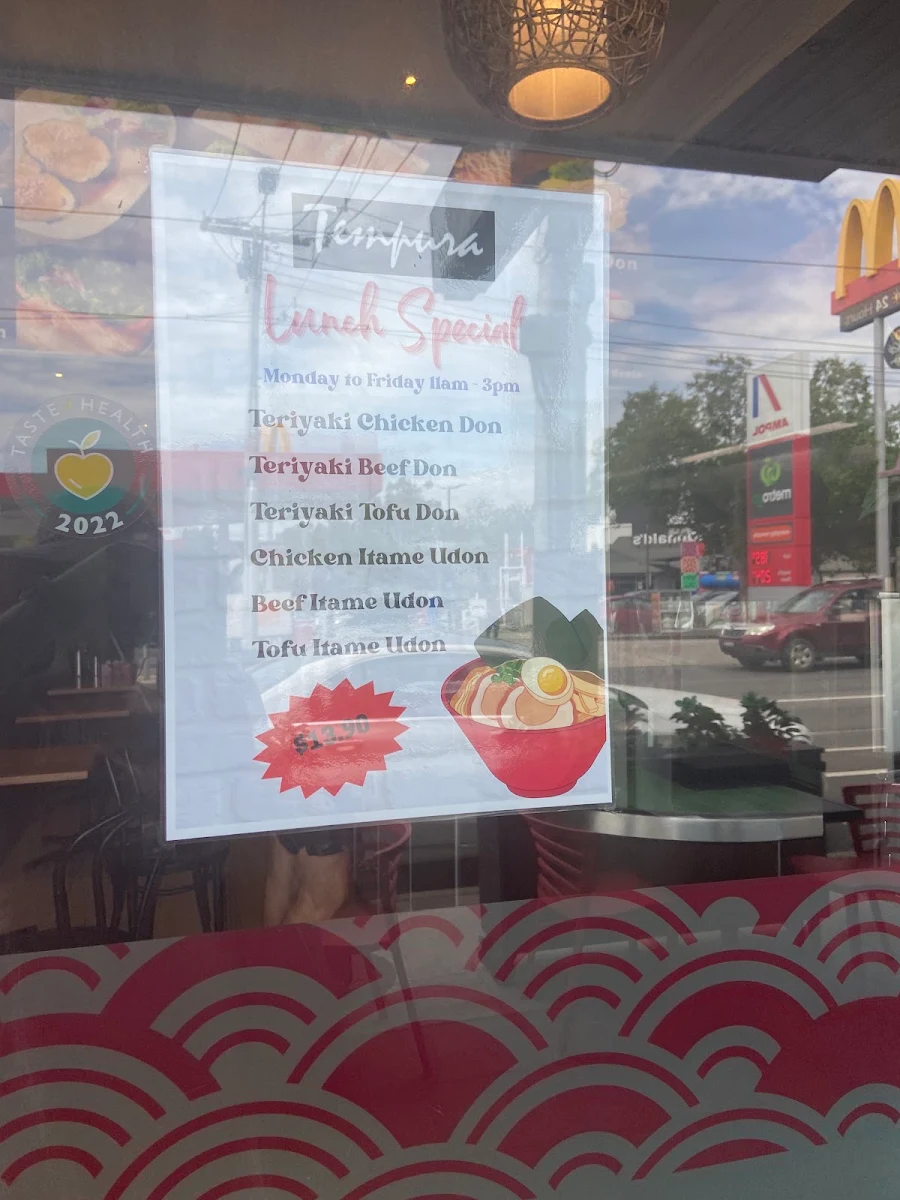 Tempura
Lunch Special
Monday to Friday 11am - 3pm
Teriyaki Chicken Don
Teriyaki Beef Don
Teriyaki Tofu Don
Chicken Itame Udon
Beef Itame Udon
Tofu Itame Udon
$13.90
TASTE HEALTH
2022
24 Hours
AMPOL
metro
McDonald's